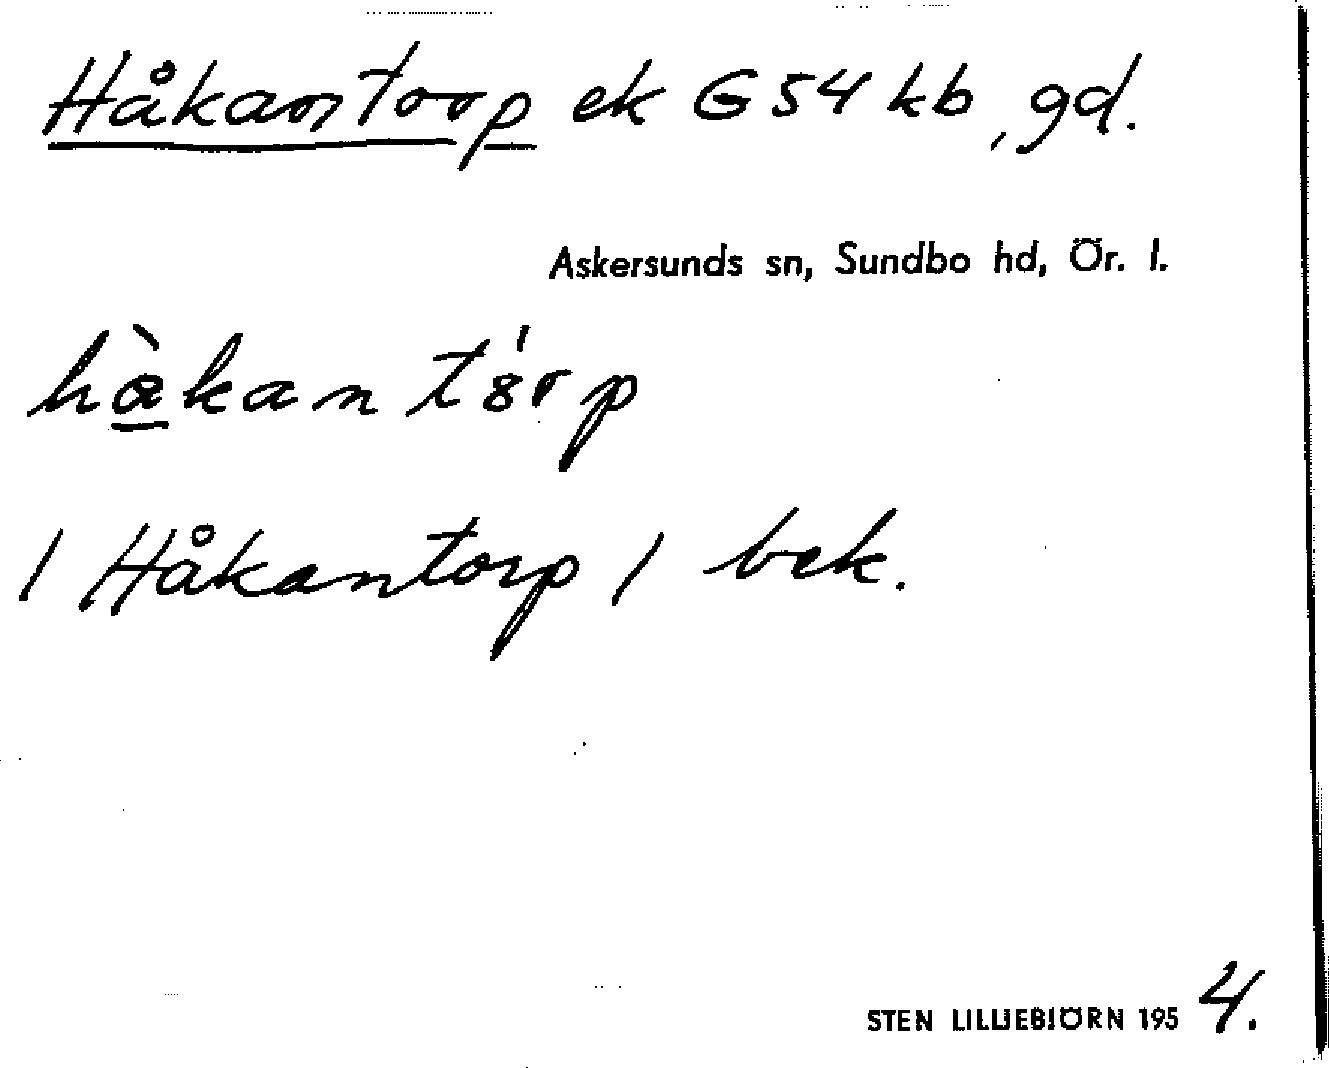 Håkantorp ek G54 kb, gd.
Askersunds sn, Sundbo hd, Ör. l.
hàkantórp
/ Håkantorp / bek.
STEN LILLIEBJÖRN 1954.